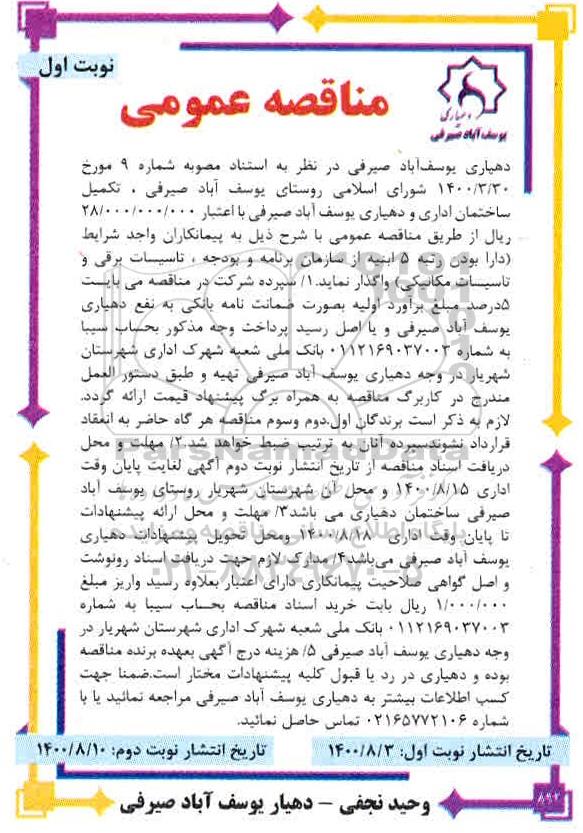 نوبت اول
مناقصه عمومی
دهیاری
یوسف آباد صیرفی
دهیاری یوسف‌آباد صیرفی در نظر به استناد مصوبه شماره ۹ مورخ
۱۴۰۰/۳/۳۰ شورای اسلامی روستای یوسف آباد صیرفی ، تکمیل
ساختمان اداری و دهیاری یوسف آباد صیرفی با اعتبار ۲۸/۰۰۰/۰۰۰/۰۰۰
ریال از طریق مناقصه عمومی با شرح ذیل به پیمانکاران واجد شرایط
(دارا بودن رتبه ۵ ابنیه از سازمان برنامه و بودجه ، تاسیسات برقی و
تاسیسات مکانیکی) واگذار نماید.۱/ سپرده شرکت در مناقصه می بایست
۵درصد مبلغ برآورد اولیه بصورت ضمانت نامه بانکی به نفع دهیاری
یوسف آباد صیرفی و یا اصل رسید پرداخت وجه مذکور بحساب سیبا
به شماره ۰۱۱۲۱۶۹۰۳۷۰۰۳ بانک ملی شعبه شهرک اداری شهرستان
شهریار در وجه دهیاری یوسف آباد صیرفی تهیه و طبق دستور العمل
مندرج در کاربرگ مناقصه به همراه برگ پیشنهاد قیمت ارائه گردد.
لازم به ذکر است برندگان اول،دوم وسوم مناقصه هر گاه حاضر به انعقاد
قرارداد نشوندسپرده آنان به ترتیب ضبط خواهد شد.۲/ مهلت و محل
دریافت اسناد مناقصه از تاریخ انتشار نوبت دوم آگهی لغایت پایان وقت
اداری ۱۴۰۰/۸/۱۵ و محل آن شهرستان شهریار روستای یوسف آباد
صیرفی ساختمان دهیاری می باشد۳/ مهلت و محل ارائه پیشنهادات
تا پایان وقت اداری ۱۴۰۰/۸/۱۸ ومحل تحویل پیشنهادات دهیاری
یوسف آباد صیرفی می‌باشد۴/ مدارک لازم جهت دریافت اسناد رونوشت
و اصل گواهی صلاحیت پیمانکاری دارای اعتبار بعلاوه رسید واریز مبلغ
۱/۰۰۰/۰۰۰ ریال بابت خرید اسناد مناقصه بحساب سیبا به شماره
۰۱۱۲۱۶۹۰۳۷۰۰۳ بانک ملی شعبه شهرک اداری شهرستان شهریار در
وجه دهیاری یوسف آباد صیرفی ۵/ هزینه درج آگهی بعهده برنده مناقصه
بوده و دهیاری در رد یا قبول کلیه پیشنهادات مختار است.ضمنا جهت
کسب اطلاعات بیشتر به دهیاری یوسف آباد صیرفی مراجعه نمائید یا با
شماره ۰۲۱۶۵۷۷۲۱۰۶ تماس حاصل نمائید.
تاریخ انتشار نوبت اول: ۱۴۰۰/۸/۳ تاریخ انتشار نوبت دوم: ۱۴۰۰/۸/۱۰
وحید نجفی – دهیار یوسف آباد صیرفی
ParsNamadData